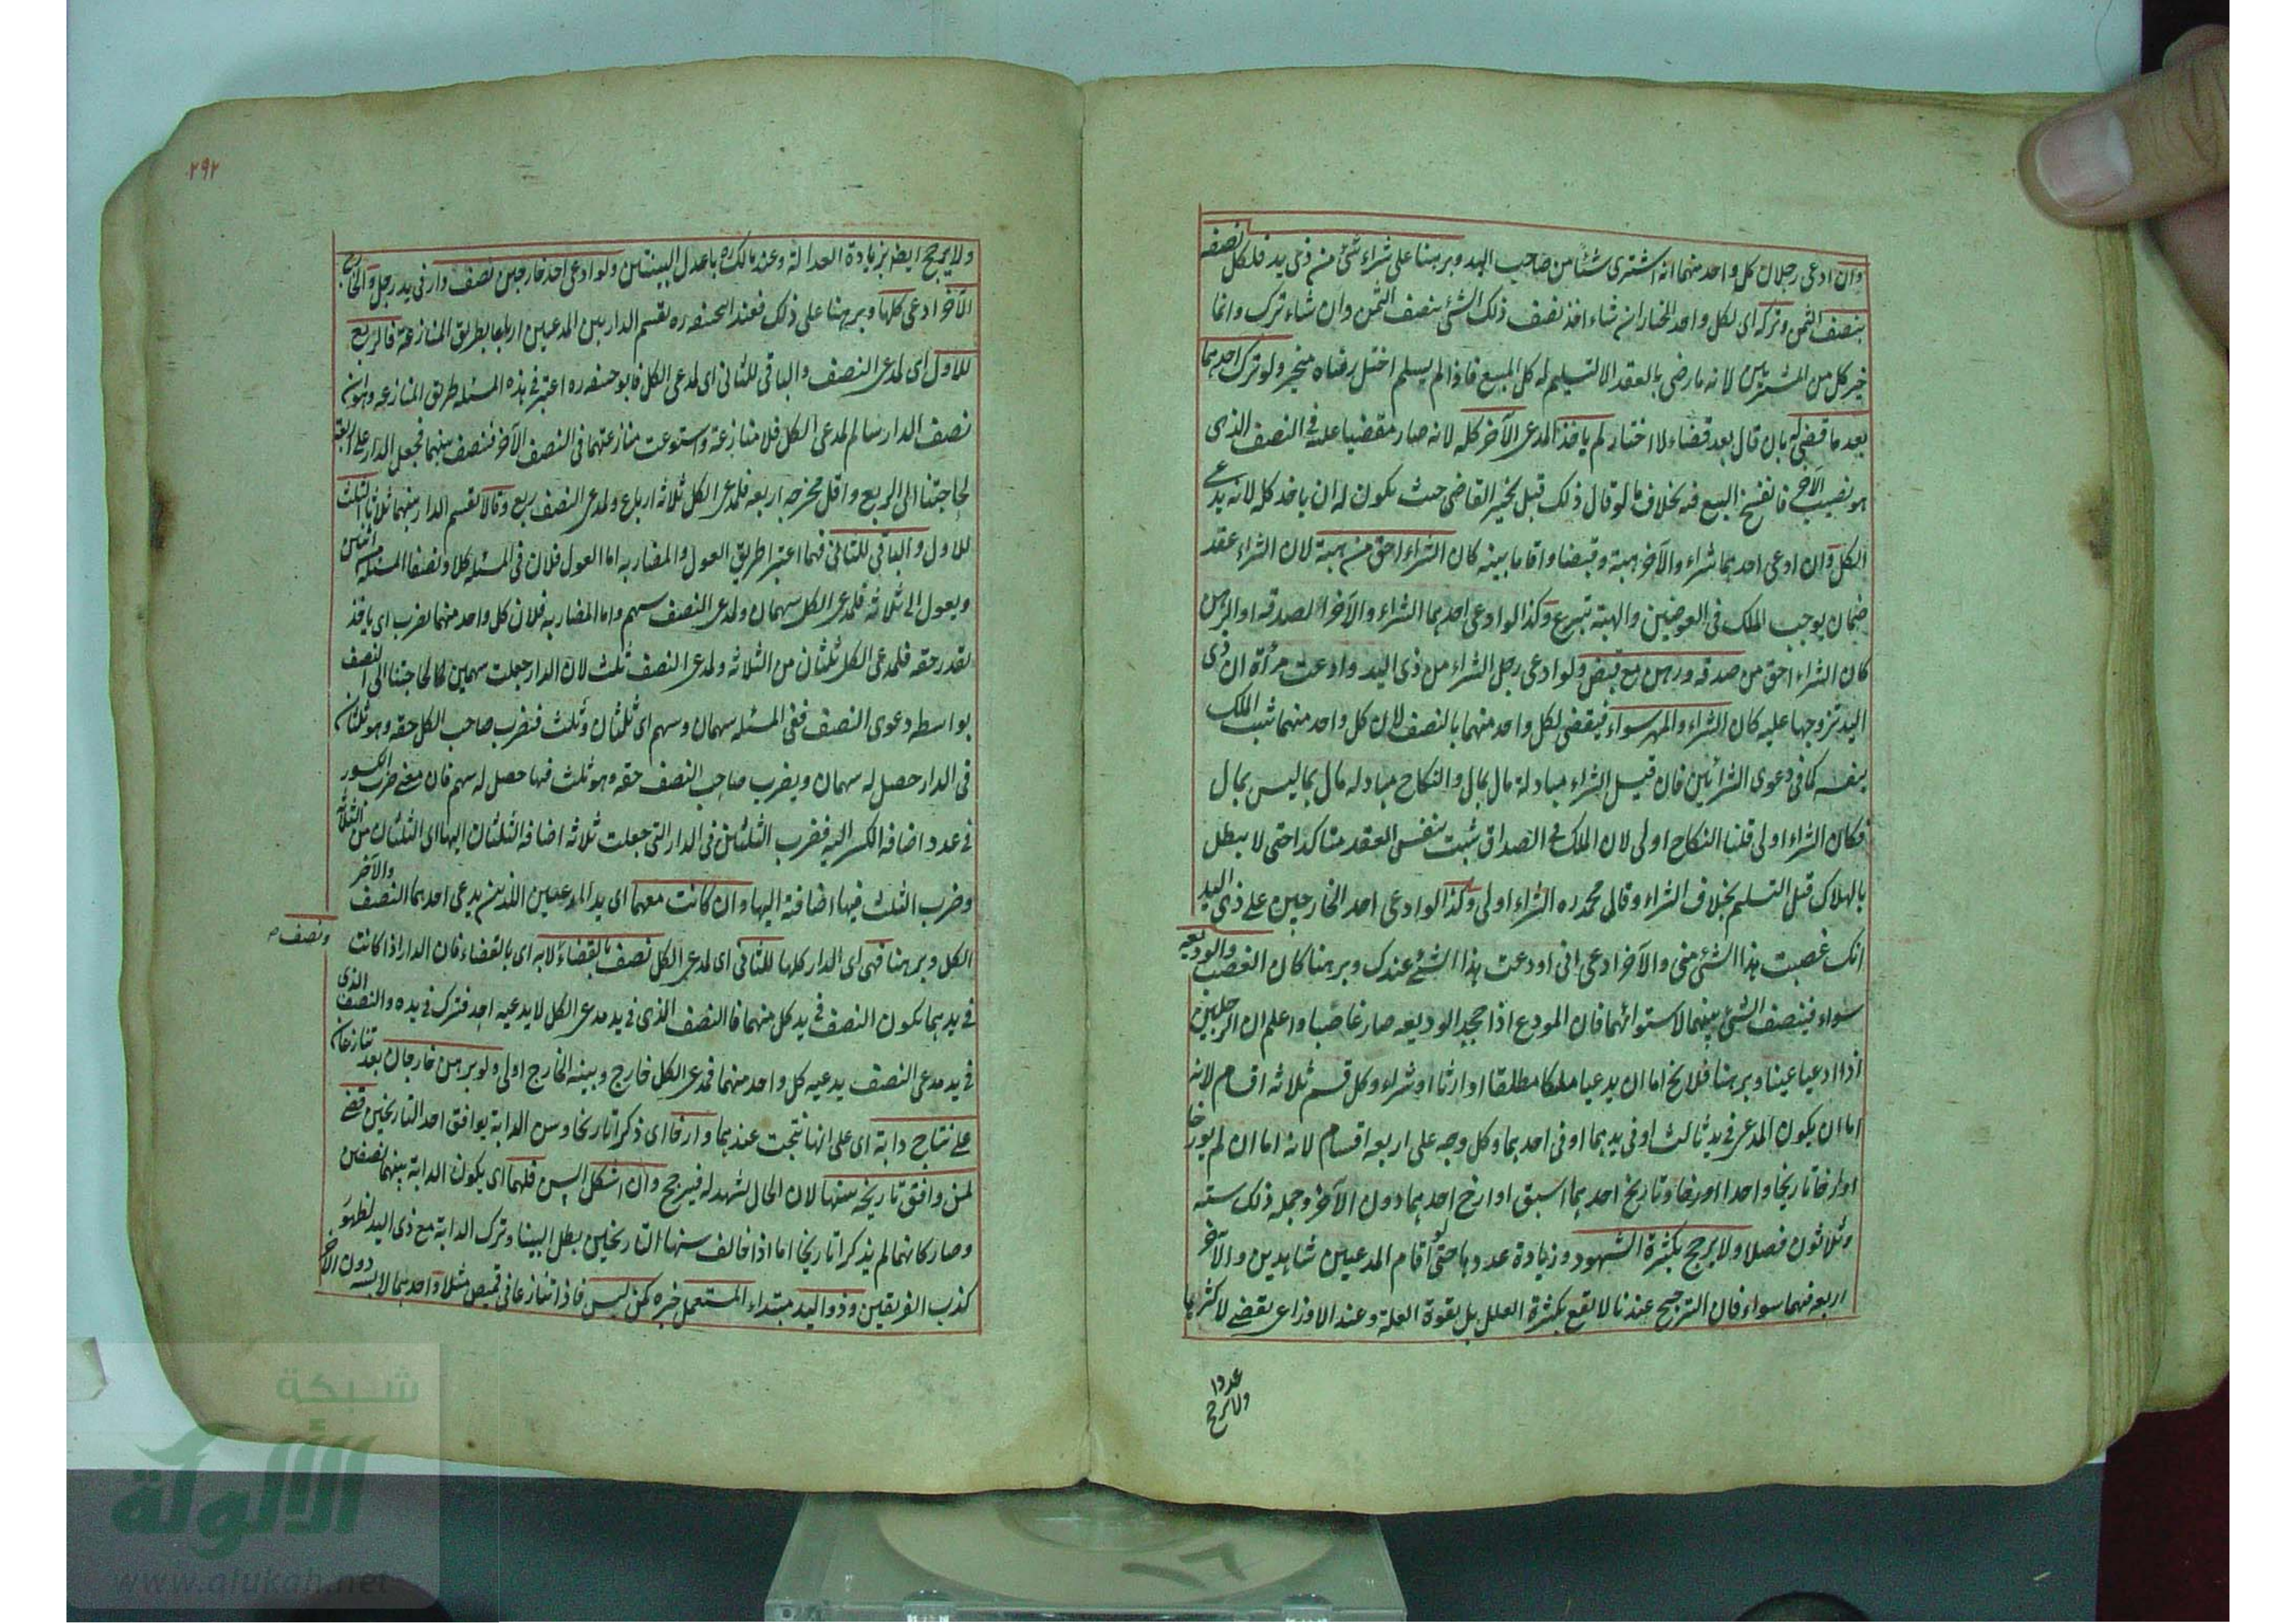 وان ادعى رجلان كل واحد منهما انه اشترى شئا من صاحب اليد وبرهنا على شراء شئ من ذى يد فلكل نصفه
بنصف الثمن وتركه اى لكل واحد الخيار ان شاء اخذ نصف ذلك الشئ بنصف الثمن وان شاء ترك وانما
خير كل من المشتريين لانه ما رضى بالعقد الا لتسليم له كل المبيع فاذا لم يسلم اختل رضاه فتخير ولو ترك احدهما
بعد ما قضى له بان قال بعد قضاء لا اختار لم ياخذ المدعى الآخر كله لانه صار مقضيا عليه فى النصف الذى
هو نصيب الآخر فانفسخ البيع فيه بخلاف ما لو قال ذلك قبل تخيير القاضى حيث يكون له ان ياخذ كله لانه يدعى
الكل وان ادعى احدهما شراء والآخر هبة وقبضا واقاما بينه كان الشراء احق من هبة لان الشراء عقد
ضمان يوجب الملك فى العوضين والهبة تبرع وكذا لو ادعى احدهما الشراء والآخر الصدقه او الرهن
كان الشراء احق من صدقه ورهن مع قبض ولو ادعى رجل الشراء من ذى اليد وادعت مرأة ان ذى
اليد تزوجها عليه كان الشراء والمهر سواء فيقضى لكل واحد منهما بالنصف لان كل واحد منهما ثبت الملك
بنفسه كما فى دعوى الشرائين فان قيل الشراء مبادلة مال بمال والنكاح مبادله مال بما ليس بمال
فكان الشراء اولى قلنا النكاح اولى لان الملك فى الصداق ثبت بنفس العقد متاكدا حتى لا يبطل
بالهلاك قبل التسليم بخلاف الشراء وقال محمد ره الشراء اولى وكذا لو ادعى احد الخارجين على ذى اليد
انك غصبت هذا الشئ منى والآخر ادعى انى اودعت هذا الشئ عندك وبرهنا كان الغصب والوديعه
سواء فينصف الشئ بينهما لاستوائهما فان المودع اذا جحد الوديعه صار غاصبا واعلم ان الرجلين
اذا ادعيا عينا وبرهنا فلا يخ اما ان يدعيا ملكا مطلقا او ارثا او شراء وكل قسم ثلاثه اقسام لانه
اما ان يكون المدعى فى يد ثالث او فى يدهما او فى احدهما وكل وجه على اربعه اقسام لانه اما ان لم يورخا
او ارخا تاريخا واحدا او ارخا وتاريخ احدهما اسبق او ارخ احدهما دون الآخر وجمله ذلك سته
وثلاثون فصلا ولا يرجح بكثرة الشهود وزيادة عددها حتى لو اقام المدعيين شاهدين والآخر
اربعه فهما سواء فان الترجيح عندنا لا يقع بكثرة العلل بل بقوة العلة وعند الاوزاعى يقضى لاكثرهما
عددا
ولا يرجح
٢٩٢
ولا يرجح ايض بزيادة العدالة وعند مالك ره باعدل البينتين ولو ادعى احد خارجين نصف دار فى يد رجل والخارج
الآخر ادعى كلها وبرهنا على ذلك فعند ابيحنيفه ره تقسم الدار بين المدعيين ارباعا بطريق المنازعة فالربع
للاول اى لمدعى النصف والباقى للثانى اى لمدعى الكل فابو حنيفه ره اعتبر فى هذه المسئله طريق المنازعه وهو ان
نصف الدار سالم لمدعى الكل فلا منازعة واستوعت منازعتهما فى النصف الآخر فينصف بينهما فجعل الدار على اربعة
لحاجتنا الى الربع واقل مخرجه اربعه فلمدعى الكل ثلاثه ارباع ولمدعى النصف ربع وقالا تقسم الدار بينهما ثلاثا الثلث
للاول والباقى للثانى فهما اعتبرا طريق العول والمضاربه اما العول فلان فى المسئله كلا ونصفا المسئله من اثنين
ويعول الى ثلاثه فلمدعى الكل سهمان ولمدعى النصف سهم واما المضاربه فلان كل واحد منهما يضرب اى ياخذ
بقدر حقه فلمدعى الكل ثلثان من الثلاثه ولمدعى النصف ثلث لان الدار جعلت سهمين كما لحاجتنا الى النصف
بواسطه دعوى النصف ففى المسئله سهمان وسهم اى ثلثان وثلث فيضرب صاحب الكل حقه وهو ثلثان
فى الدار حصل له سهمان ويضرب صاحب النصف حقه وهو ثلث فيها حصل له سهم فان معنى ضرب الكسور
فى عدد اضافه الكسر اليه فضرب الثلثين فى الدار التى جعلت ثلاثه اضافه الثلثان اليها اى الثلثان من الثلاثة
وضرب الثلث فيها اضافته اليها وان كانت معهما اى يد المدعيين الذين يدعى احدهما النصف والآخر
الكل وبرهنا فهى اى الدار كلها للثانى اى لمدعى الكل نصف بالقضاء لا به اى بالقضاء فان الدار اذا كانت
ونصف
فى يدهما يكون النصف فى يد كل منهما فالنصف الذى فى يد مدعى الكل لا يدعيه احد فترك فى يده والنصف الذى
فى يد مدعى النصف يدعيه كل واحد منهما فمدعى الكل خارج وبينه الخارج اولى ولو برهن خارجان بعد تنازعان
على نتاج دابة اى على انها نتجت عندهما وارخا اى ذكرا تاريخا وسن الدابة يوافق احد التاريخين قضى
لمن وافق تاريخه سنها لان الحال تشهد له فيرجح وان اشكل السن فلهما اى يكون الدابة بينهما نصفين
وصار كانهما لم يذكرا تاريخا اما اذا خالف سنها التاريخين بطل البينا وترك الدابة مع ذى اليد لظهور
كذب الفريقين وذو اليد مبتداء المستعمل خبره كمن لبس فاذا تنازعا فى قميص مثلا واحدهما لابسه دون الآخر
شبكة
الألوكة
www.alukah.net